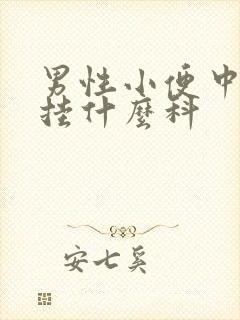 男性小便中
挂什麼科
安七奚